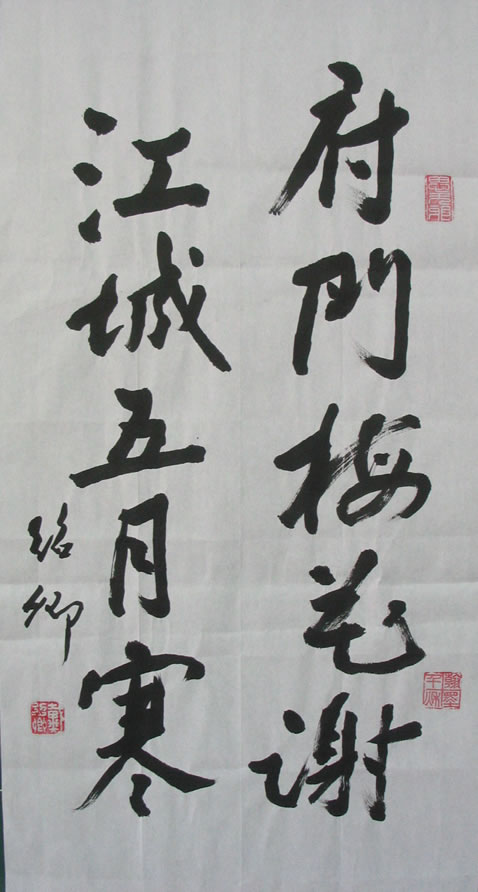 府門梅花谢
江城五月寒
绍卿